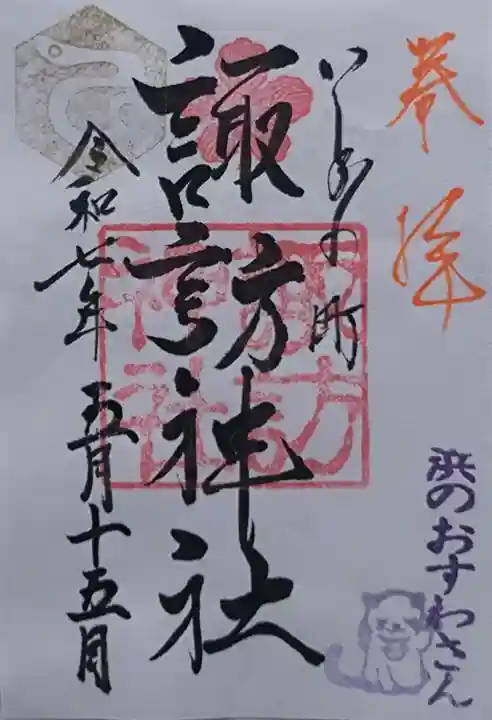 奉拝
浜のおすわさん
いしのの町
諏訪神社
諏訪神社
令和七年五月十五日